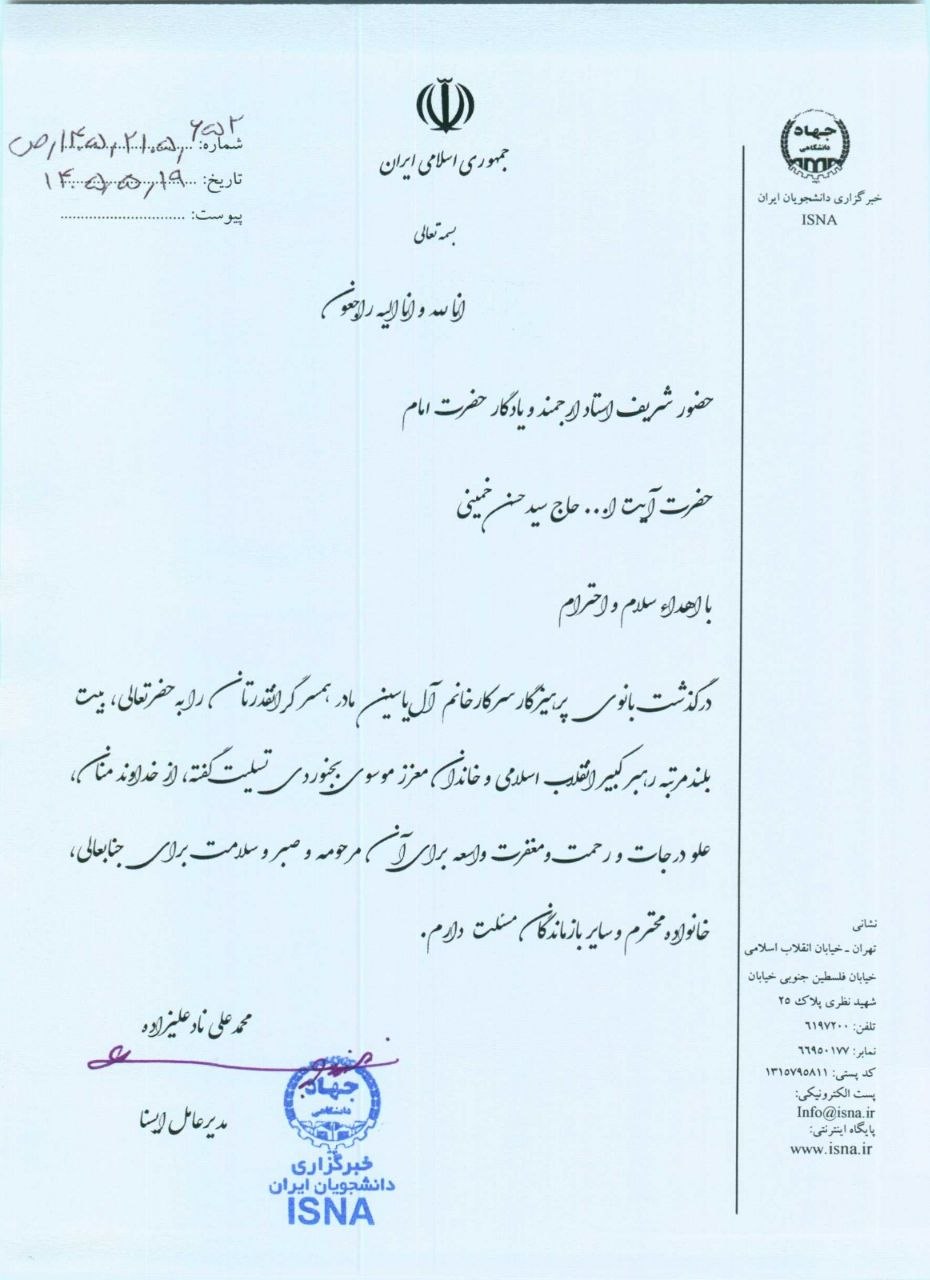 جمهوری اسلامی ایران
بسمه تعالی
جهاد
دانشگاهی
خبرگزاری دانشجویان ایران
ISNA
شماره:
تاریخ: ۱۴۰۵٫۵٫۱۹
پیوست: ...............................
انا لله و انا الیه راجعون
حضور شریف استاد ارجمند و یادگار حضرت امام
حضرت آیت ا... حاج سید حسن خمینی
با اهداء سلام و احترام
درگذشت بانوی پرهیزگار سرکارخانم آل یاسین مادر همسر گرانقدرتان را به حضرتعالی، بیت
بلندمرتبه رهبر کبیر انقلاب اسلامی و خاندان معزز موسوی بجنوردی تسلیت گفته، از خداوند منان،
علو درجات و رحمت ومغفرت واسعه برای آن مرحومه و صبر و سلامت برای جنابعالی،
خانواده محترم و سایر بازماندگان مسئلت دارم.
محمدعلی نادعلیزاده
مدیرعامل ایسنا
جهاد
دانشگاهی
خبرگزاری
دانشجویان ایران
ISNA
نشانی
تهران ـ خیابان انقلاب اسلامی
خیابان فلسطین جنوبی خیابان
شهید نظری پلاک ۲۵
تلفن: ۶۱۹۷۲۰۰
نمابر: ۶۶۹۵۰۱۷۷
کد پستی: ۱۳۱۵۷۹۵۸۱۱
پست الکترونیکی:
Info@isna.ir
پایگاه اینترنتی:
www.isna.ir